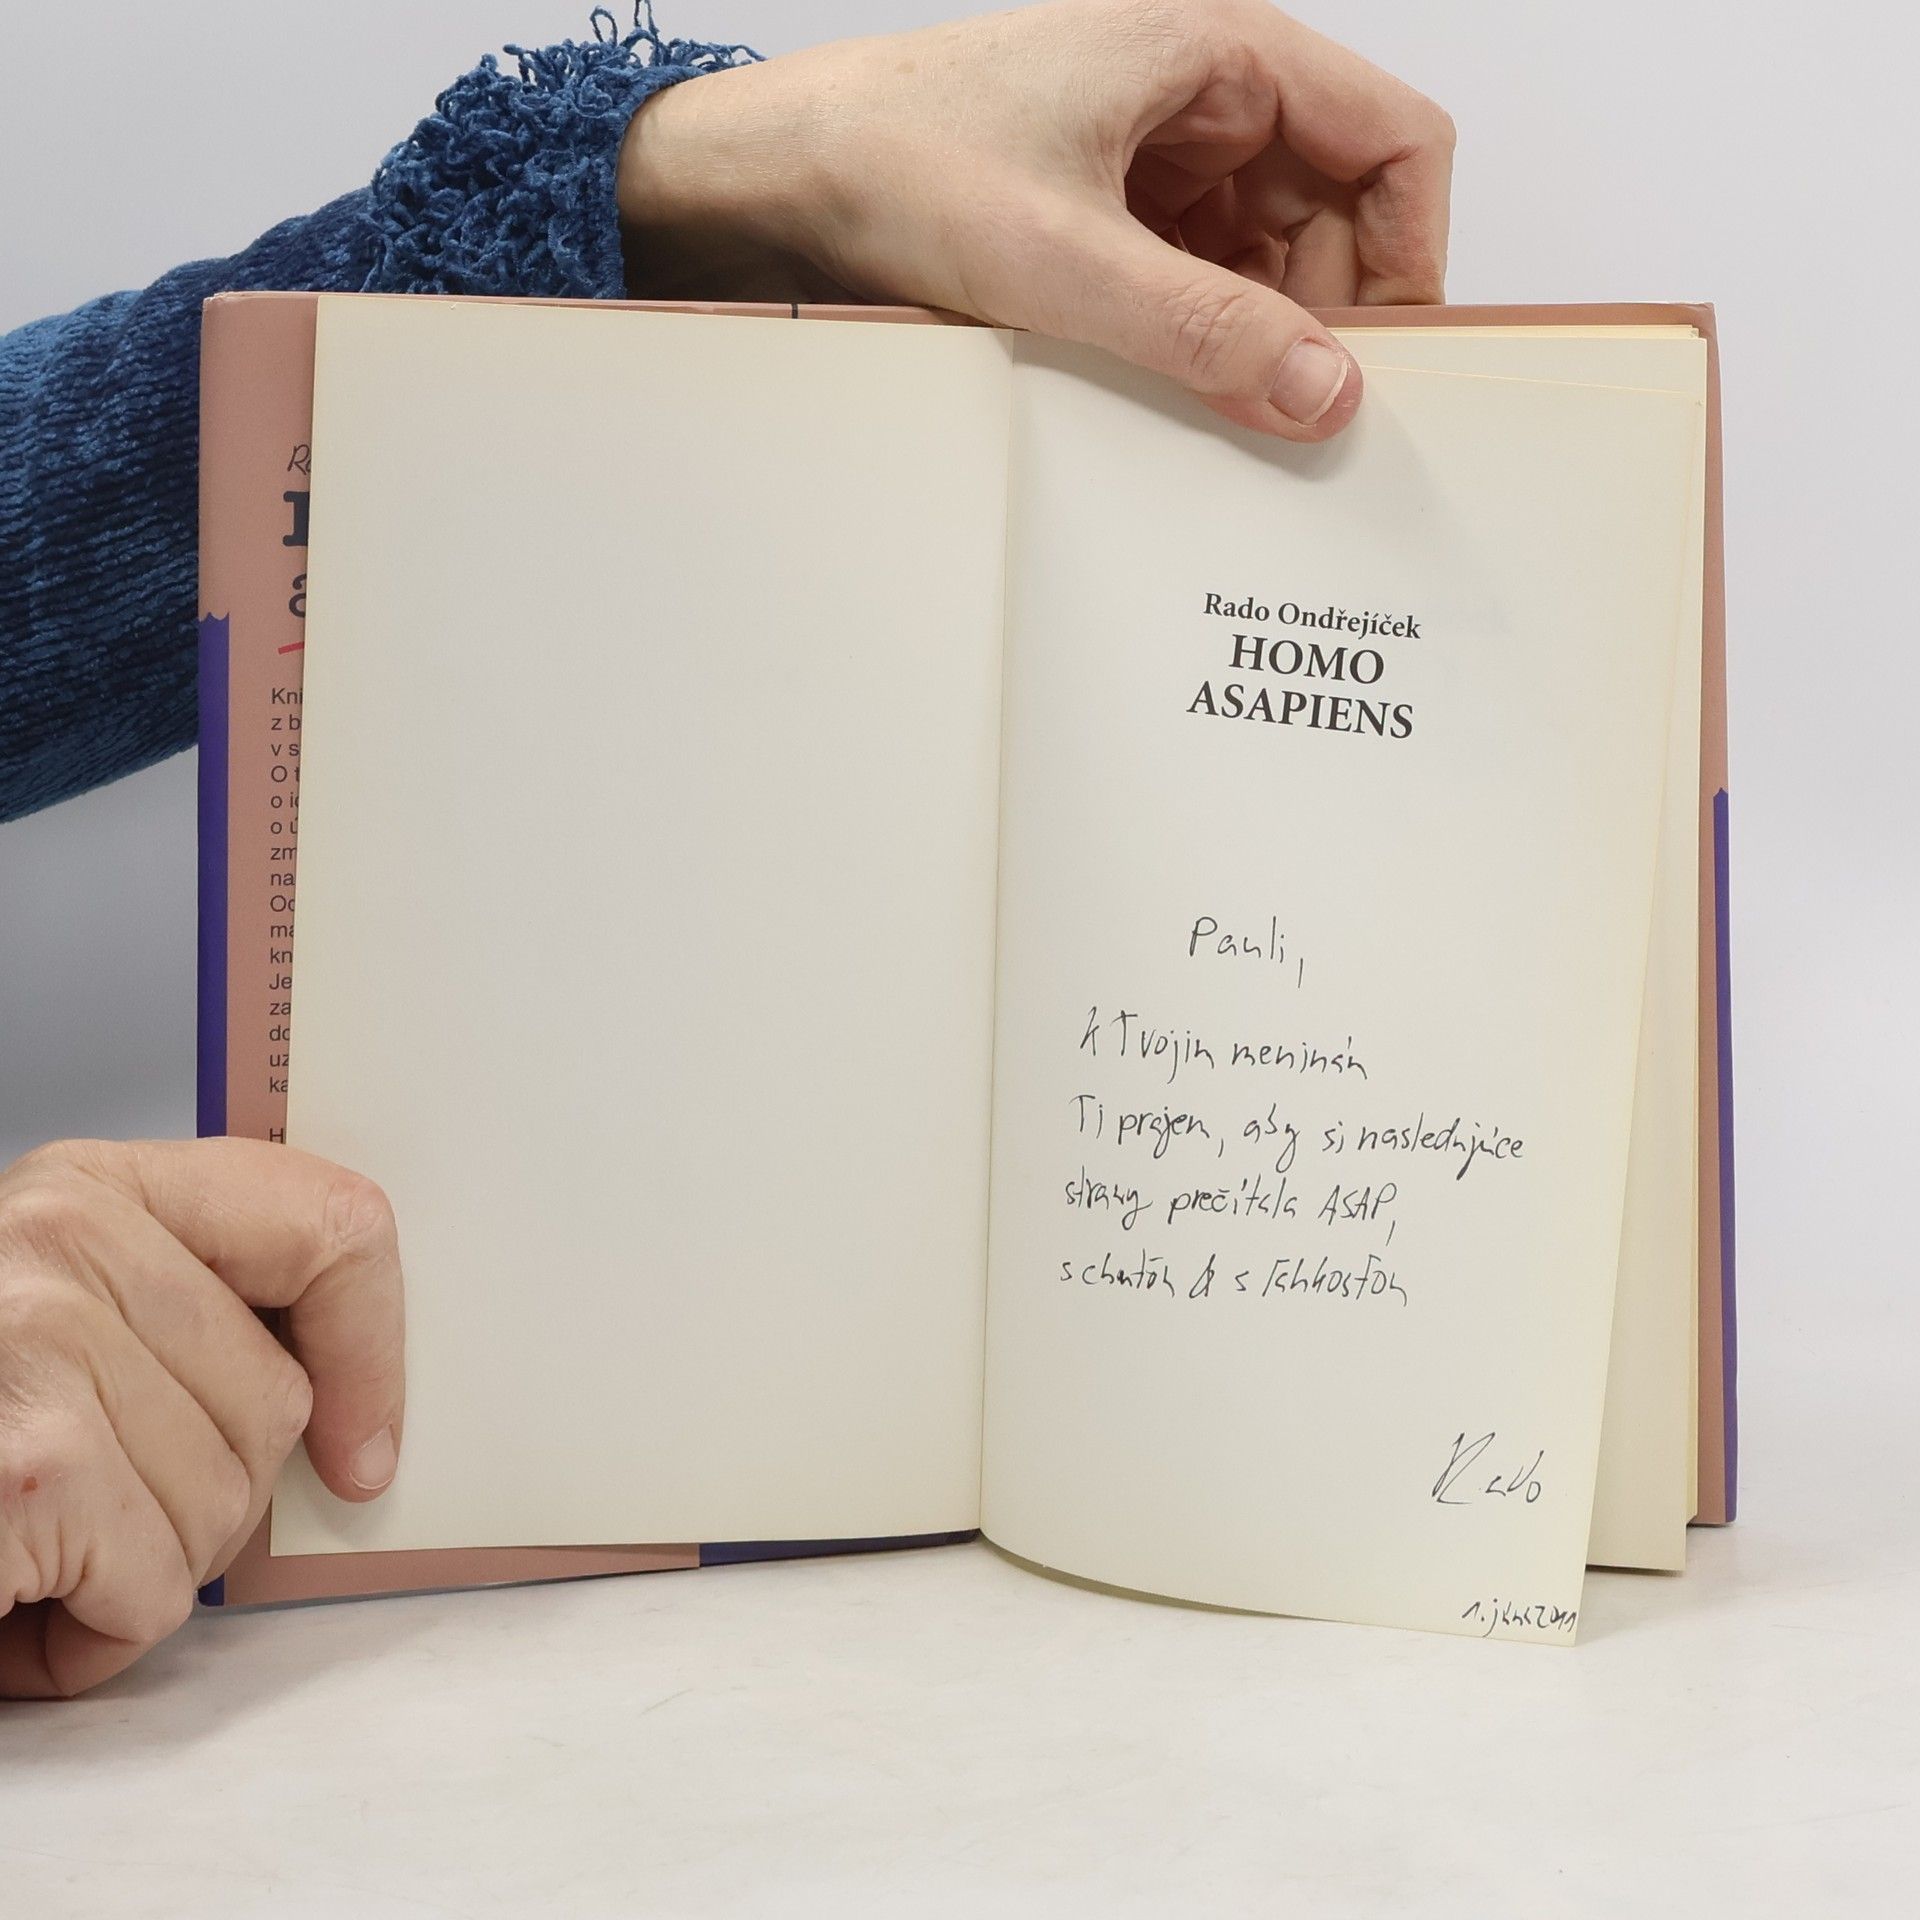 Rado Ondřejíček
HOMO
ASAPIENS
Pauli,
k Tvojim meninám
Ti prajem, aby si nasledujúce
strany prečítala ASAP,
s chuťou & s ľahkosťou
Rado
1. júna 2011
Kni
z b
v s
O t
na
Je
za